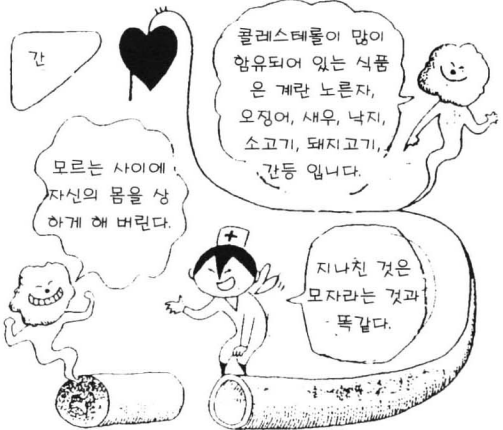 간
콜레스테롤이 많이
함유되어 있는 식품
은 계란 노른자,
오징어, 새우, 낙지,
소고기, 돼지고기,
간등 입니다.
모르는 사이에
자신의 몸을 상
하게 해 버린다.
지나친 것은
모자라는 것과
똑같다.